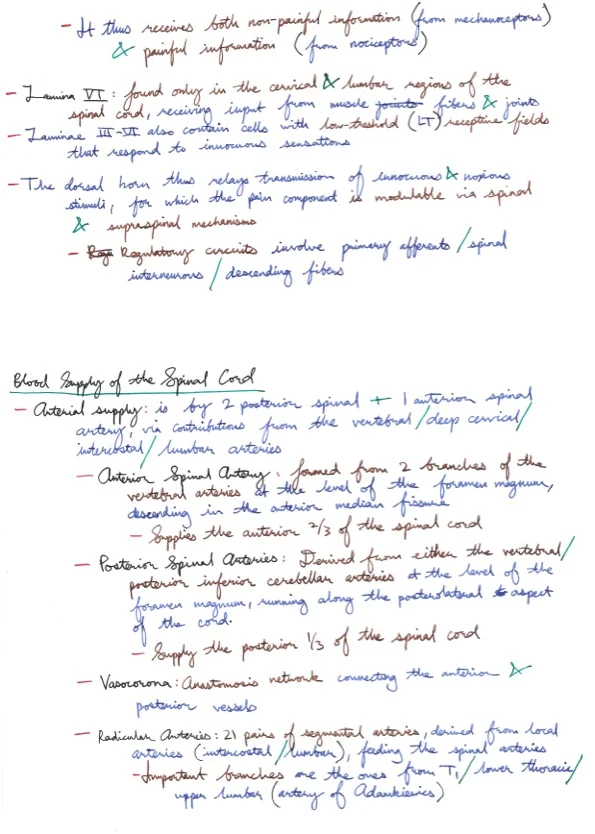 - It thus receives both non-painful information (from mechanoceptors)
& painful information (from nociceptors)
- Lamina VI: found only in the cervical & lumbar regions of the
spinal cord, receiving input from muscle joints fibers & joints
- Laminae III-VI also contain cells with low-treshold (LT) receptive fields
that respond to innocuous sensations
- The dorsal horn thus relays transmission of innocuous & noxious
stimuli, for which the pain component is modulable via spinal
& supraspinal mechanisms
- Regulatory circuits involve primary afferents / spinal
interneurons / descending fibers
Blood Supply of the Spinal Cord
- Arterial supply: is by 2 posterior spinal + 1 anterior spinal
artery, via contributions from the vertebral / deep cervical /
intercostal / lumbar arteries
- Anterior Spinal Artery: formed from 2 branches of the
vertebral arteries at the level of the foramen magnum,
descending in the anterior median fissure
- Supplies the anterior 2/3 of the spinal cord
- Posterior Spinal Arteries: Derived from either the vertebral /
posterior inferior cerebellar arteries at the level of the
foramen magnum, running along the posterolateral aspect
of the cord.
- Supply the posterior 1/3 of the spinal cord
- Vasocorona: Anastomosis network connecting the anterior &
posterior vessels
- Radicular Arteries: 21 pairs of segmental arteries, derived from local
arteries (intercostal / lumbar), feeding the spinal arteries
- Important branches are the ones from T1 / lower thoracic /
upper lumbar (artery of Adamkiewics)